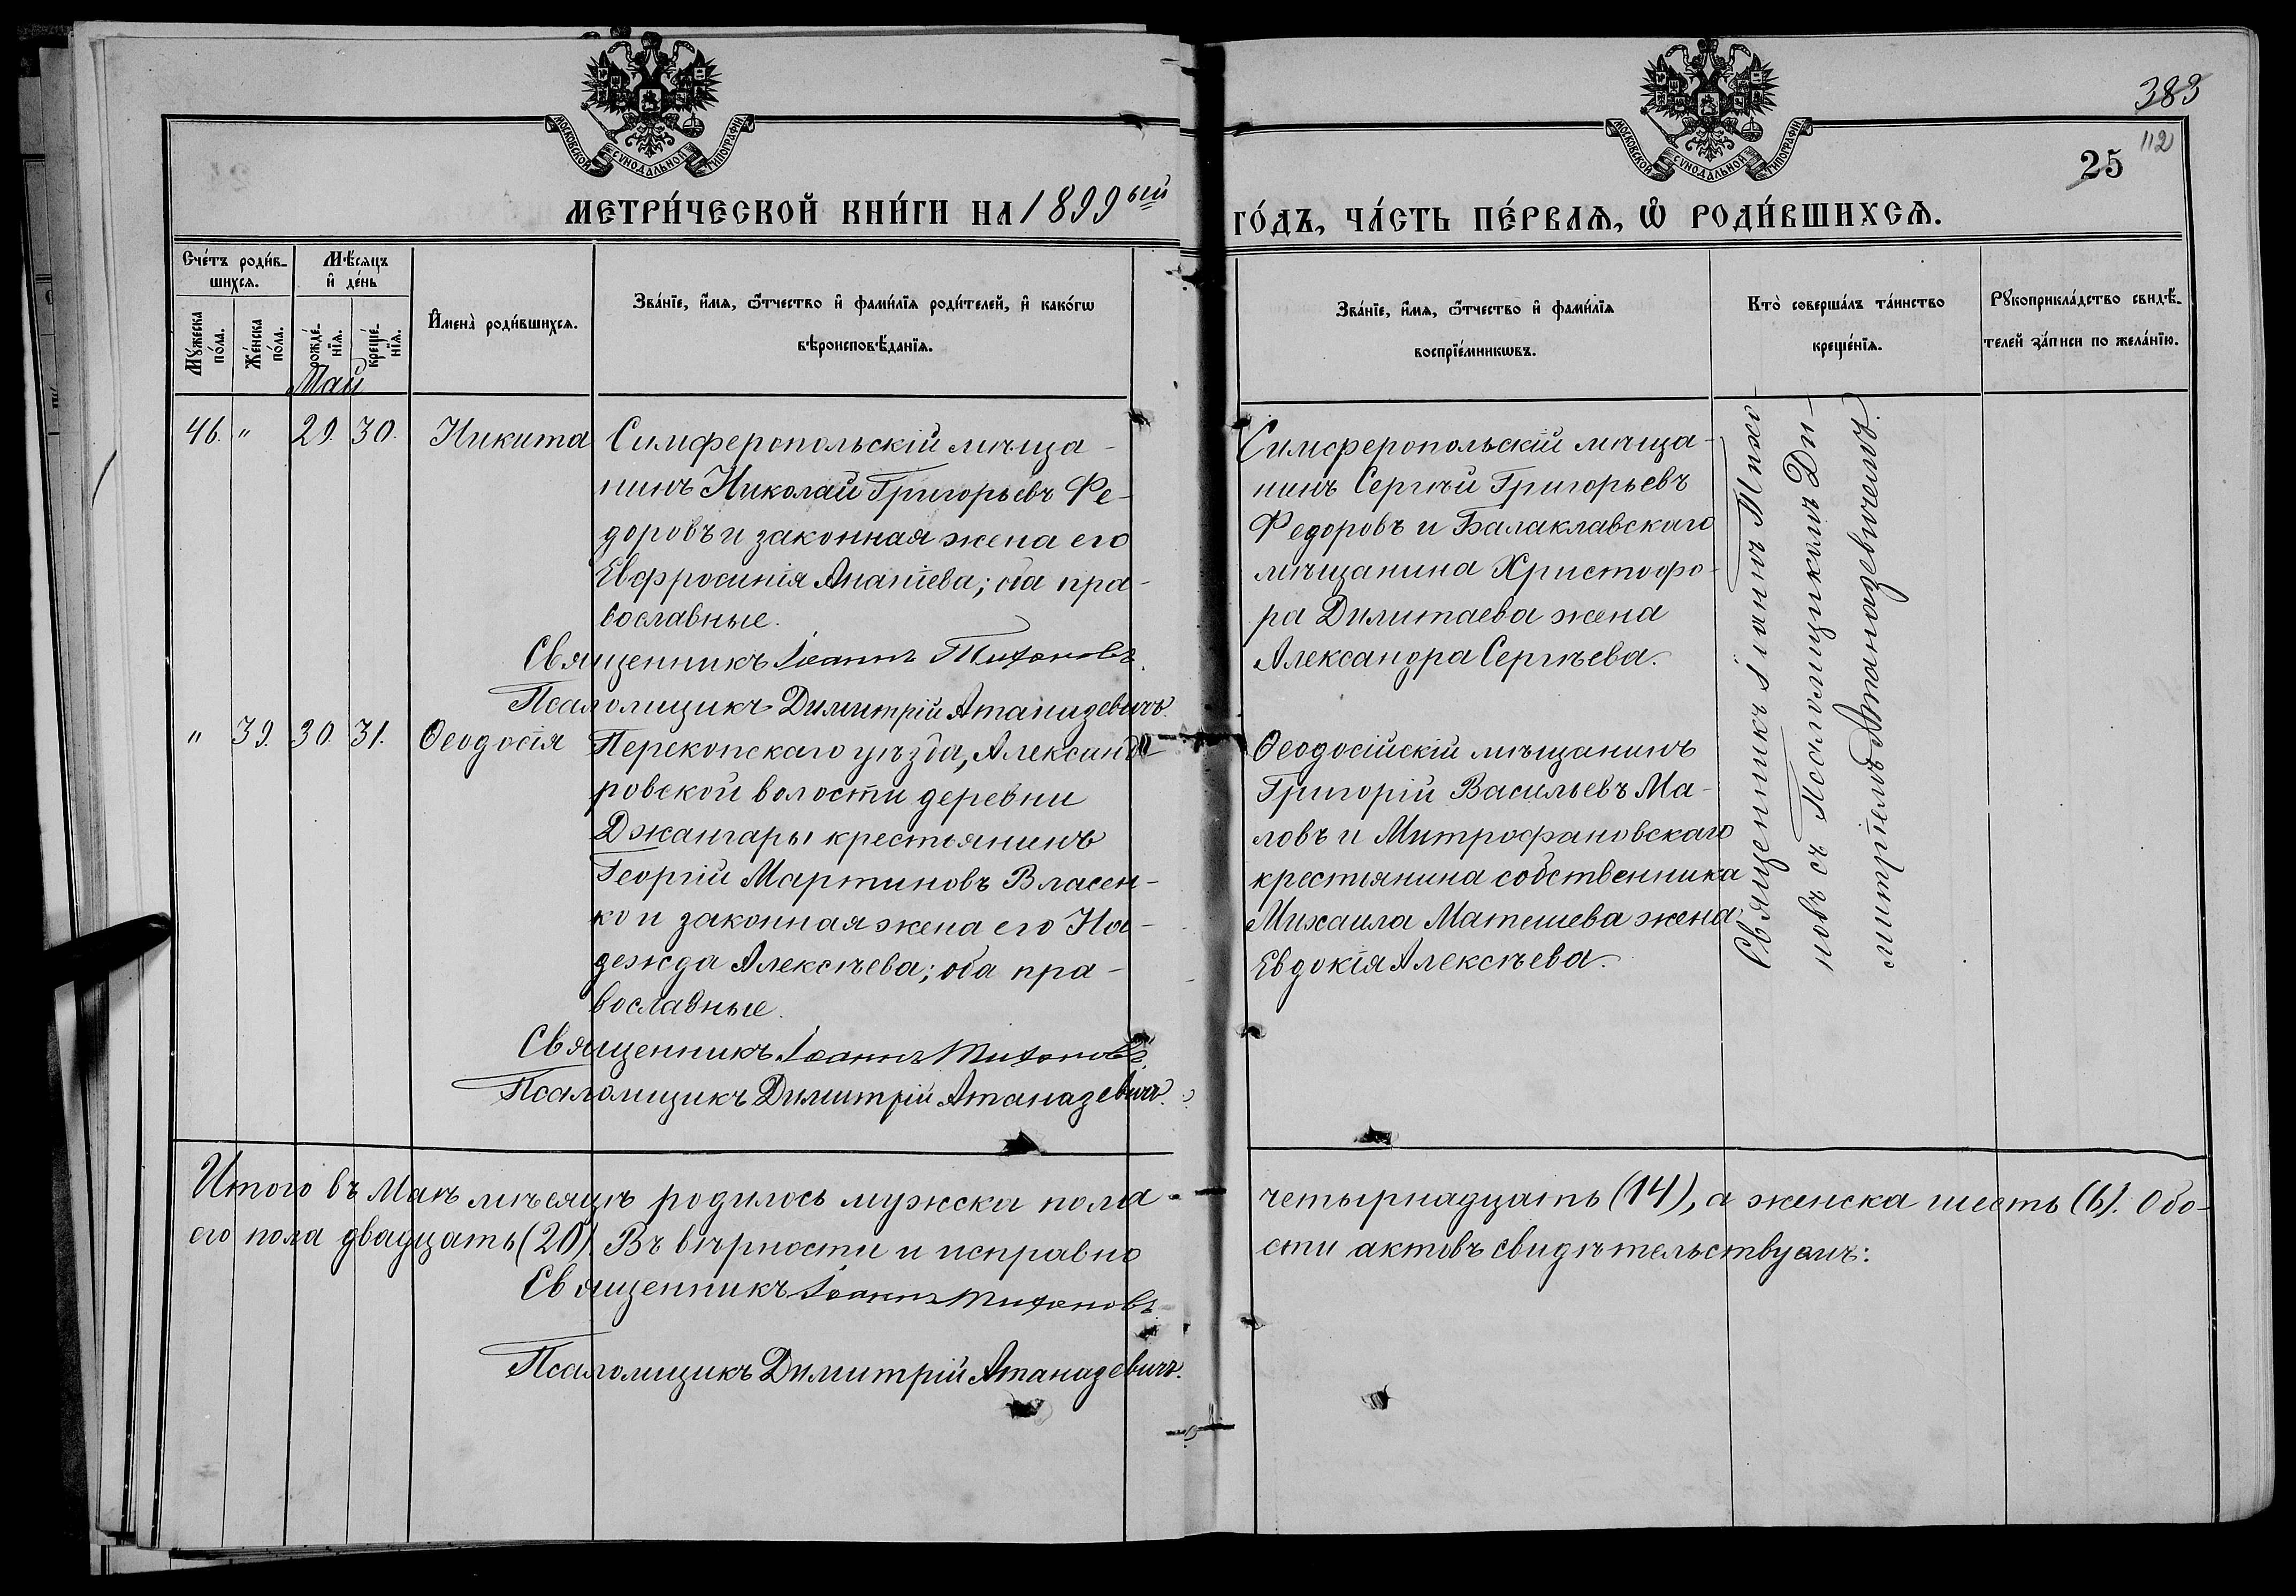 383
112
25
МОСКОВСКОЙ СѴНОДАЛЬНОЙ ТИПОГРАФІИ
МОСКОВСКОЙ СѴНОДАЛЬНОЙ ТИПОГРАФІИ
МЕТРИ́ЧЕСКОЙ КНИ́ГИ НА 1899ый
ГО́ДЪ, ЧА́СТЬ ПЕ́РВАѦ, Ѡ҆ РОДИ́ВШИХСѦ.
Сче́тъ роди́в-
шихсѧ.
Мѣ́сѧцъ
и҆ де́нь
Мꙋ́жеска
по́ла.
Же́нска
по́ла.
рожде́-
нїѧ.
креще́-
нїѧ.
И҆мена̀ роди́вшихсѧ.
Зва́нїе, и҆́мѧ, ѻ҆́тчество и҆ фами́лїѧ роди́телей, и҆ како́гѡ
вѣроисповѣ́данїѧ.
Зва́нїе, и҆́мѧ, ѻ҆́тчество и҆ фами́лїѧ
воспрїе́мникѡвъ.
Кто̀ соверша́лъ та́инство
креще́нїѧ.
Рꙋкоприкла́дство свидѣ́-
телей за́писи по жела́нїю.
Май
46. " 29. 30. Никита
Симферопольскій мѣща-
нинъ Николай Григорьевъ Фе-
доровъ и законная жена его
Евфросинія Анапіева; оба пра-
вославные.
Священникъ Іоаннъ Тихоновъ.
Псаломщикъ Димитрій Атаназевичъ.
Симферопольскій мѣща-
нинъ Сергѣй Григорьевъ
Федоровъ и Балаклавскаго
мѣщанина Христофо-
ра Димитаева жена
Александра Сергѣева.
" 39. 30. 31. Ѳеодосія
Перекопскаго уѣзда, Александ-
ровской волости деревни
Джангары крестьянинъ
Георгій Мартиновъ Власен-
ко и законная жена его На-
дежда Алексѣева; оба пра-
вославные.
Священникъ Іоаннъ Тихоновъ.
Псаломщикъ Димитрій Атаназевичъ.
Ѳеодосійскій мѣщанинъ
Григорій Васильевъ Ма-
ловъ и Митрофановскаго
крестьянина собственника
Михаила Матешева жена
Евдокія Алексѣева.
Священникъ Іоаннъ Тихо-
новъ съ Псаломщикомъ Ди-
митріемъ Атаназевичемъ.
Итого въ Маѣ мѣсяцѣ родилось мужска пола четырнадцать (14), а женска шесть (6). Обо-
его пола двадцать (20). Въ вѣрности и исправно сти актовъ свидѣтельствуемъ:
Священникъ Іоаннъ Тихоновъ
Псаломщикъ Димитрій Атаназевичъ.